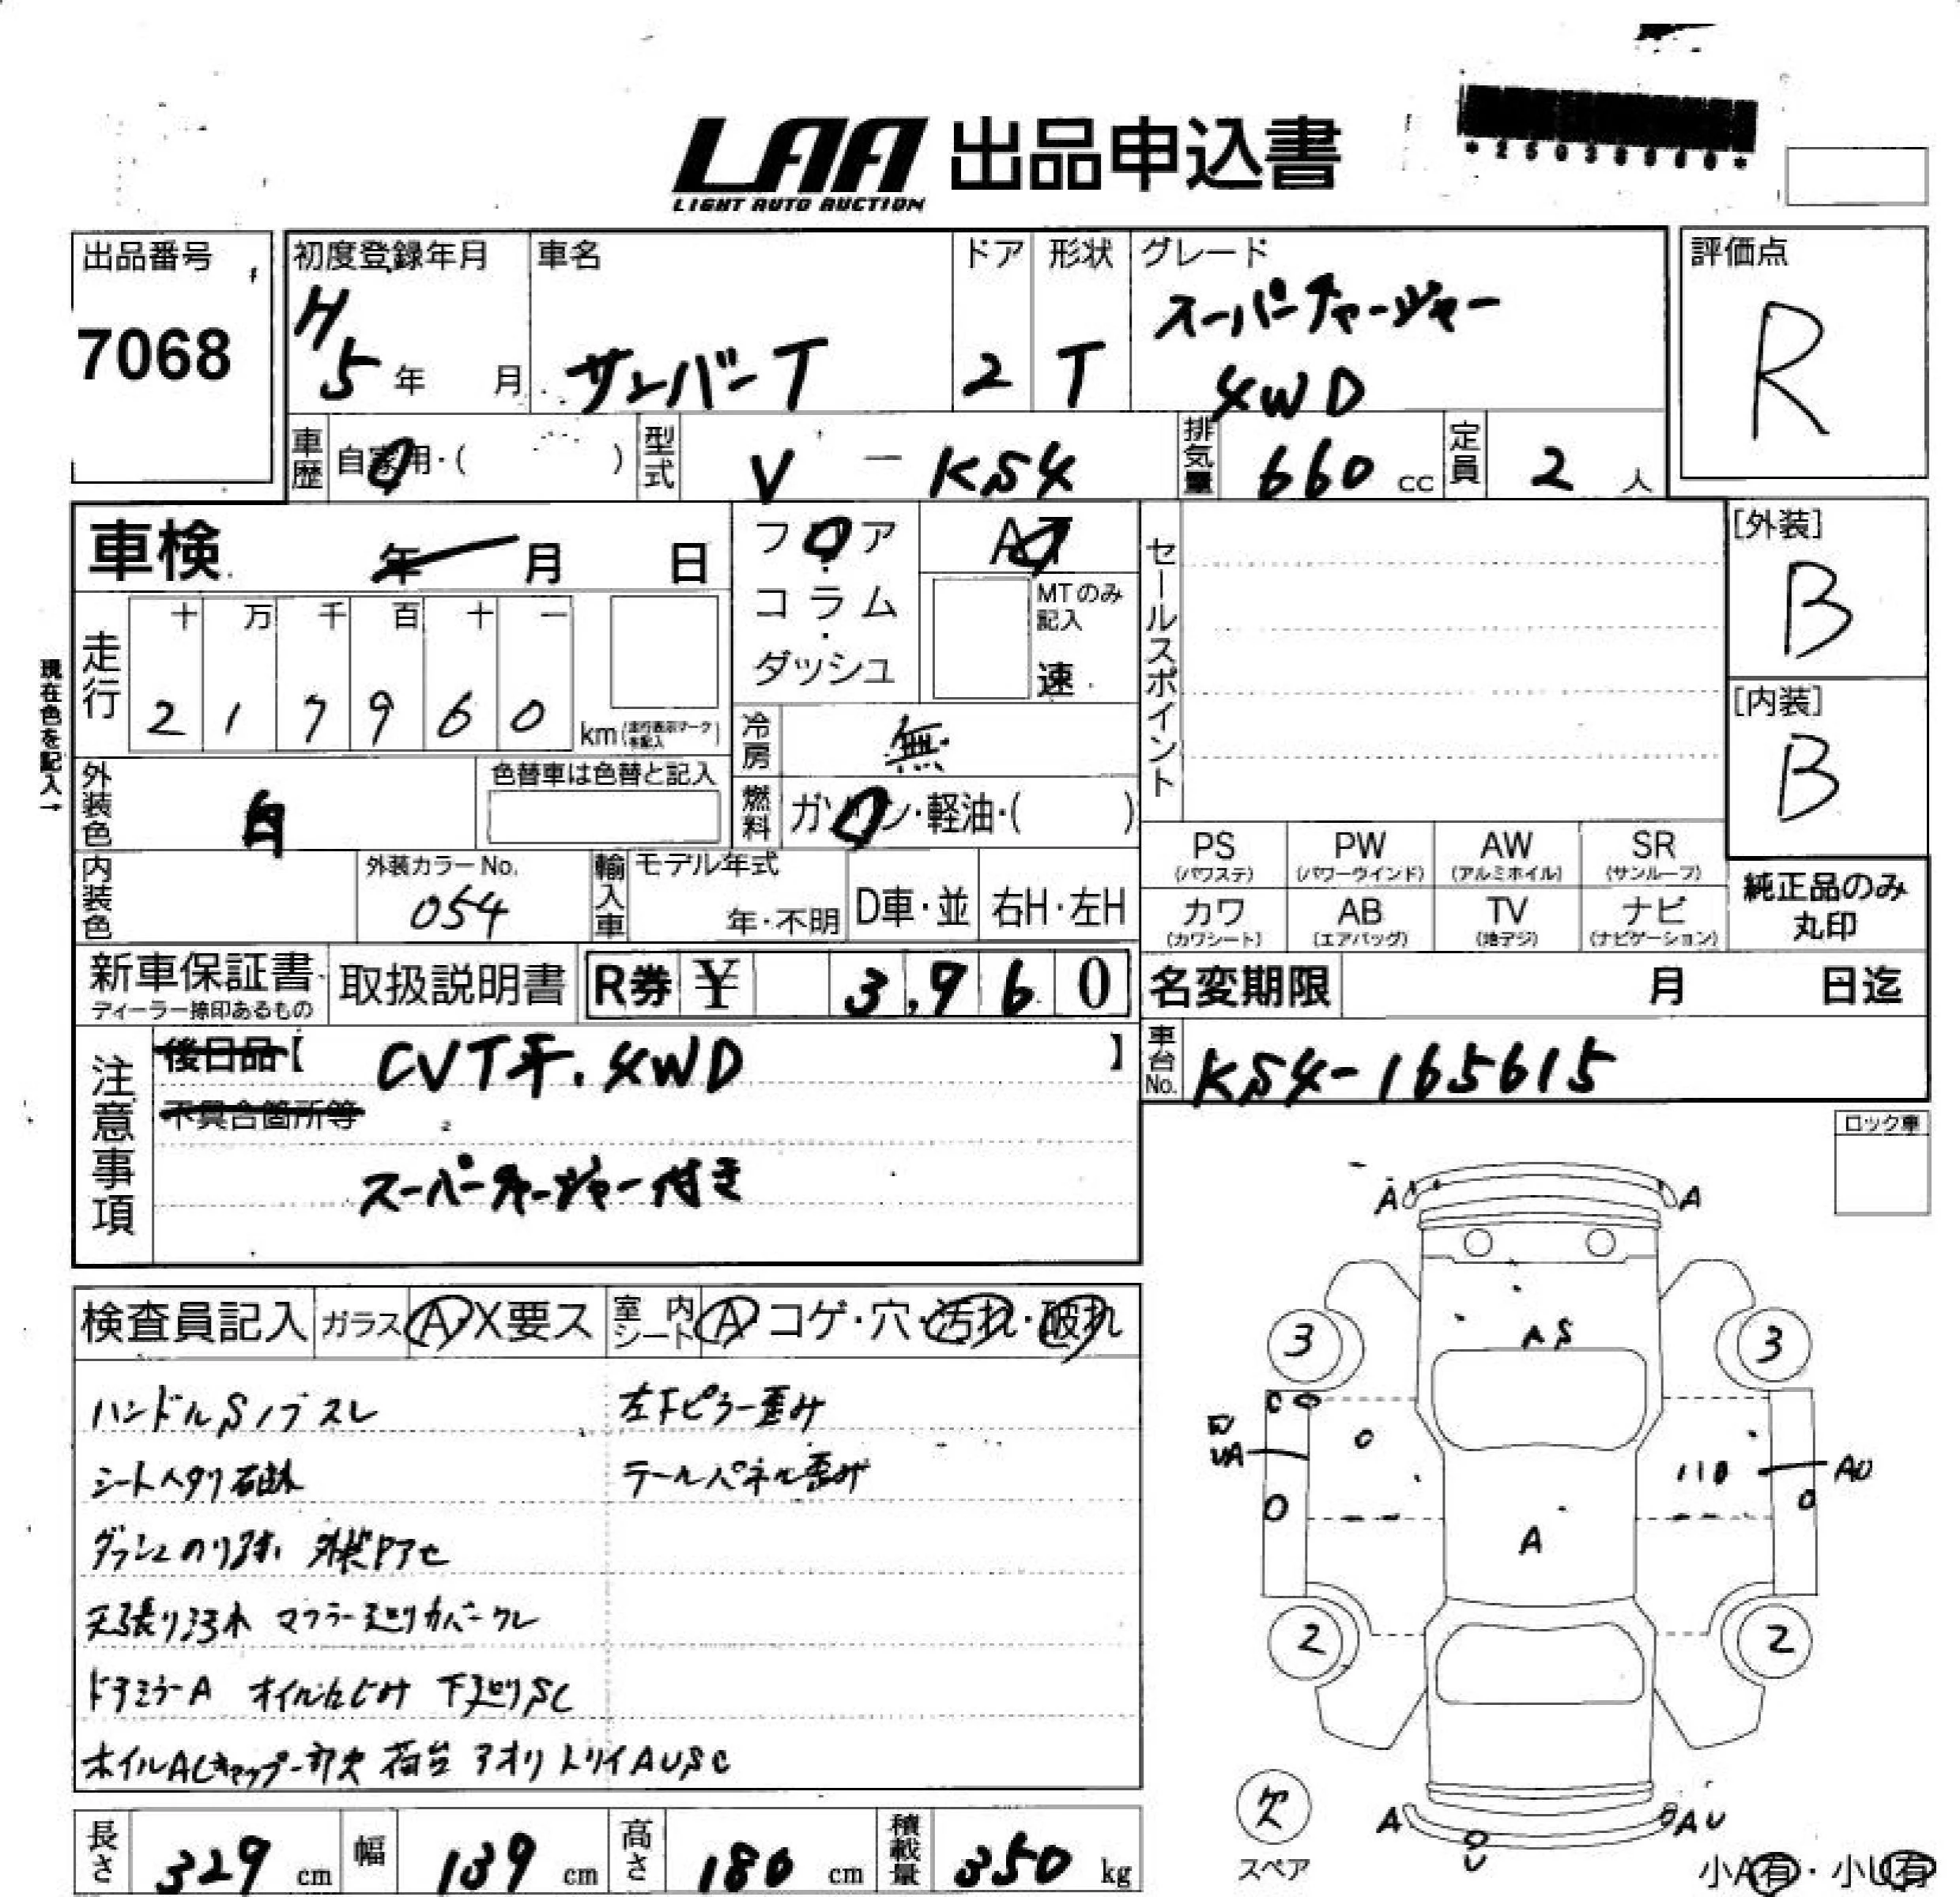 LAA 出品申込書
LIGHT AUTO AUCTION
出品番号
7068
初度登録年月
H5年 月
車名
サンバーT
ドア
2
形状
T
グレード
スーパーチャージャー
4WD
評価点
R
車歴 自家用・( )
型式 V - KS4
排気量 660 cc
定員 2 人
車検 年 月 日
フロア・コラム・ダッシュ
AT
MTのみ記入
速
セールスポイント
[外装]
B
[内装]
B
現在色を記入→
走行
十 万 千 百 十 一
2 1 7 9 6 0 km
冷房 無
外装色 白
色替車は色替と記入
燃料 ガソリン・軽油・( )
内装色
外装カラーNo.
054
輸入車
モデル年式
年・不明
D車・並
右H・左H
PS (パワステ)
PW (パワーウインド)
AW (アルミホイル)
SR (サンルーフ)
カワ (カワシート)
AB (エアバッグ)
TV (地デジ)
ナビ (ナビゲーション)
純正品のみ丸印
新車保証書
ディーラー捺印あるもの
取扱説明書
R券 ¥ 3,960
名変期限 月 日迄
注意事項
後日品【 CVT 4WD 】
不具合箇所等
スーパーチャージャー付き
車台No. KS4-165615
ロック車
検査員記入
ガラス A X要ス
室内シート A コゲ・穴・汚れ・破れ
ハンドルSノブスレ
左下ピラー歪み
シートヘタリ破れ
テールパネル歪み
ダッシュのり跡 外装ドアセ
天張り汚れ マフラー廻りカバークレ
ドアミラーA オイルにじみ 下廻りSC
ホイルACキャップ一部欠 荷台 アオリ トリイAUSC
A A
3 3
A S
C
UA
AU
A
2 2
欠
スペア
A AU
U
小A有・小U有
長さ 329 cm
幅 139 cm
高さ 180 cm
積載量 350 kg